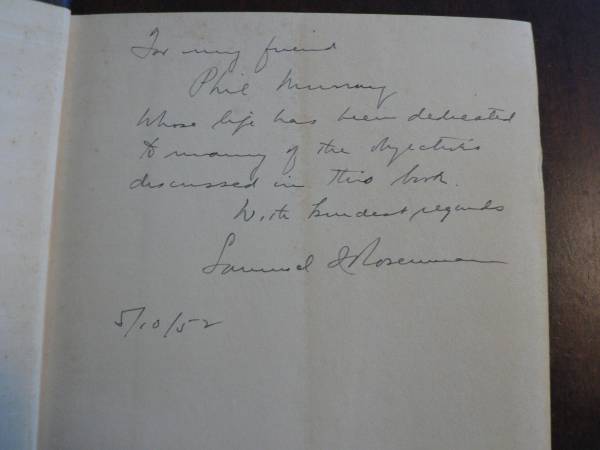 For my friend
Phil Murray
whose life has been dedicated
to many of the objectives
discussed in this book.
With kindest regards
Samuel I Rosenman
5/10/52